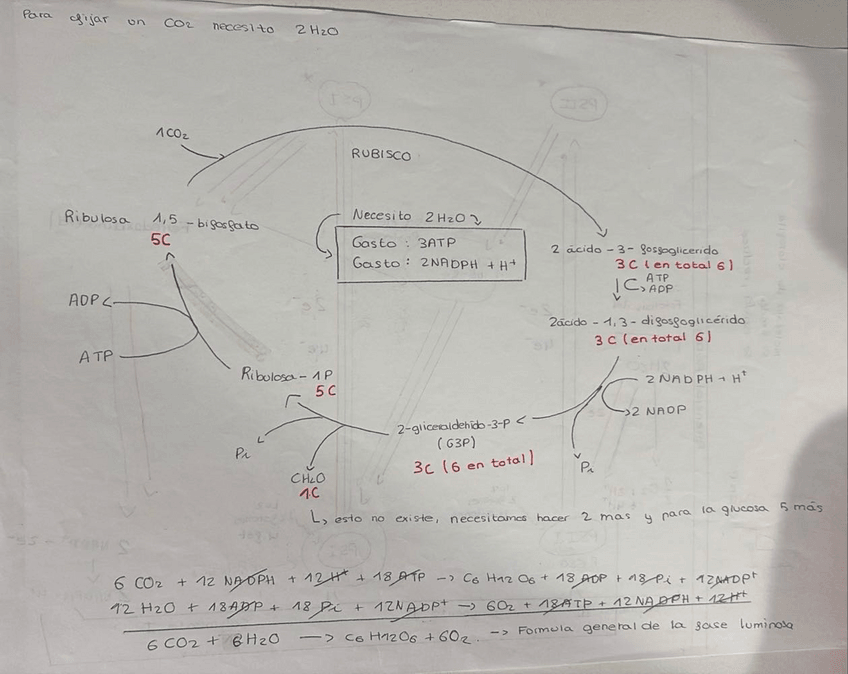 Para fijar un CO2 necesito 2H2O
1CO2
RUBISCO
Ribulosa 1,5-bifosfato
5C
Necesito 2H2O
Gasto: 3ATP
Gasto: 2NADPH + H+
2 ácido-3-fosfoglicerido
3C (en total 6)
ATP
ADP
2ácido-1,3-difosfoglicérido
3C (en total 6)
ADP
ATP
Ribulosa-1P
5C
2NADPH + H+
2 NADP
2-gliceraldehido-3-P
(G3P)
3C (6 en total)
Pi
Pi
CH2O
1C
esto no existe, necesitamos hacer 2 mas y para la glucosa 5 más
6 CO2 + 12 NADPH + 12H+ + 18 ATP -> C6 H12 O6 + 18 ADP + 18 Pi + 12NADP+
12 H2O + 18ADP + 18 Pi + 12NADP+ -> 6O2 + 18ATP + 12NADPH + 12H+
6 CO2 + 6H2O -> C6H12O6 + 6O2. -> Formula general de la fase luminosa